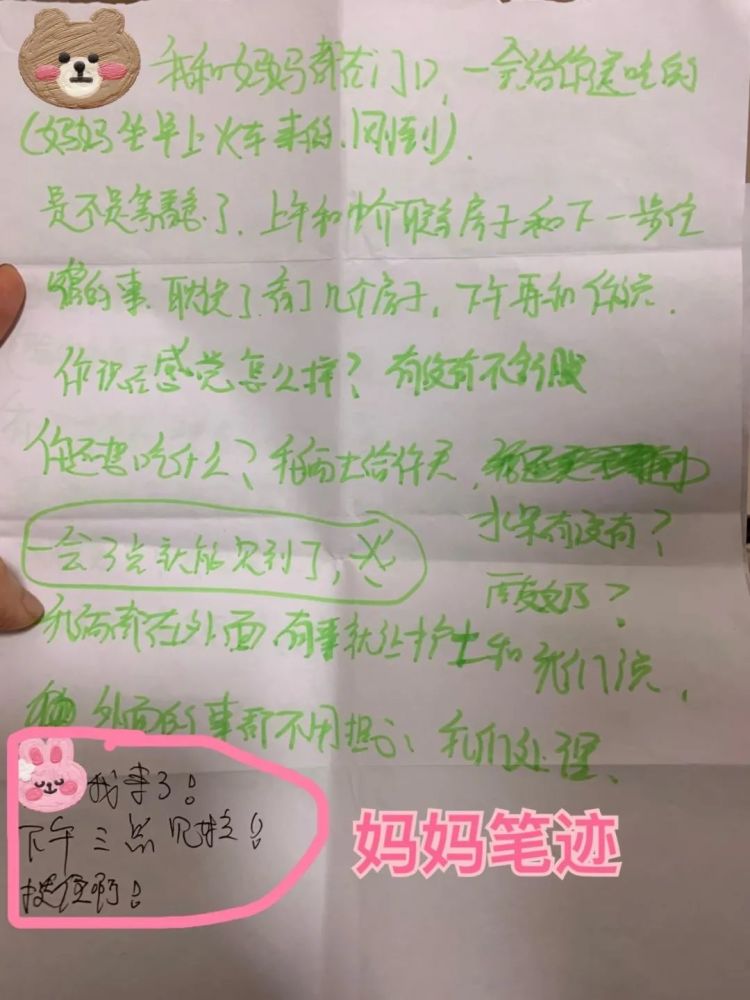 我和妈妈都在门口，一会给你送吃的
（妈妈坐早上火车来的，刚到）.
是不是等着急了，上午和中介联系房子和下一步住
的事 耽误了看了几个房子，下午再和你说.
你现在感觉怎么样？有没有不舒服
你还想吃什么？我马上给你买，
水果有没有？
一会3点就能见到了，
酸奶？
我们都在外面 有事就让护士和我们说，
外面的事都不用担心，我们处理.
我来了！
下午三点见哈！
挺住啊！
妈妈笔迹